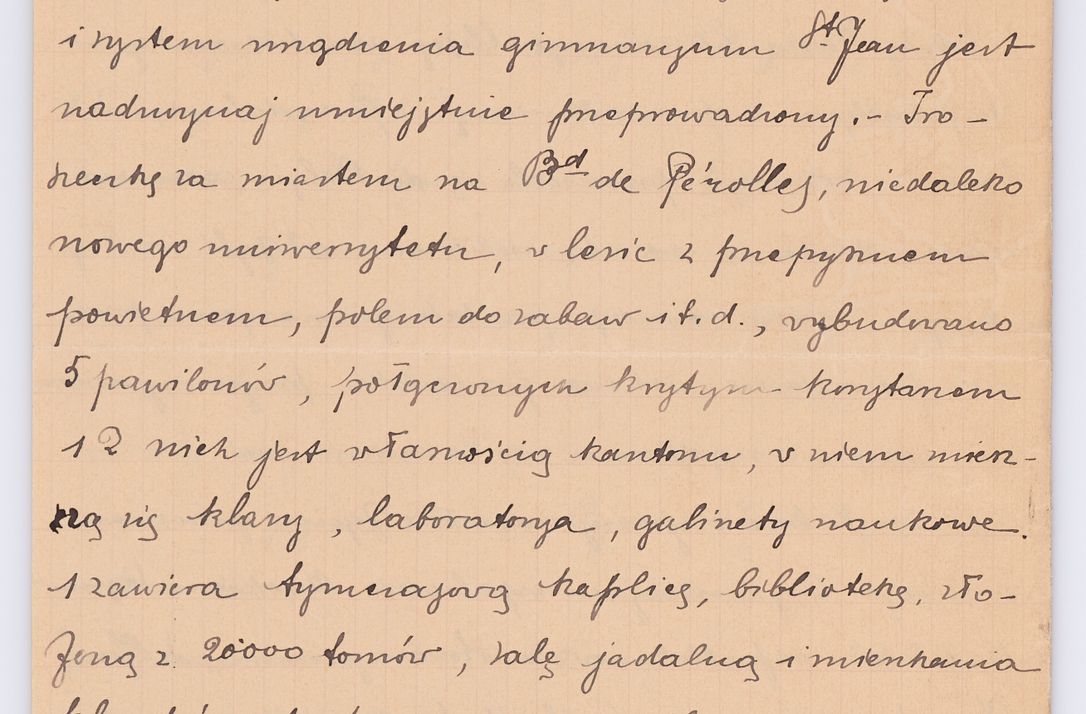 i system urządzenia gimnazyum St Jean jest
nadzwyczaj umiejętnie przeprowadzony. - Tro-
szeczkę za miastem na Bd de Pérolles, niedaleko
nowego uniwersytetu, w lesie z przepysznem
powietrzem, polem do zabaw i t. d., wybudowano
5 pawilonów, połączonych krytym korytarzem
1 z nich jest własnością kantonu, w niem miesz-
czą się klasy, laboratorya, gabinety naukowe.
1 zawiera tymczasową kaplicę, bibliotekę, zło-
żoną z 20000 tomów, salę jadalną i mieszkania